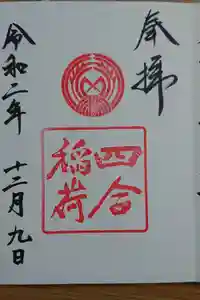 奉拝
四合
稲荷
令和二年
十二月九日